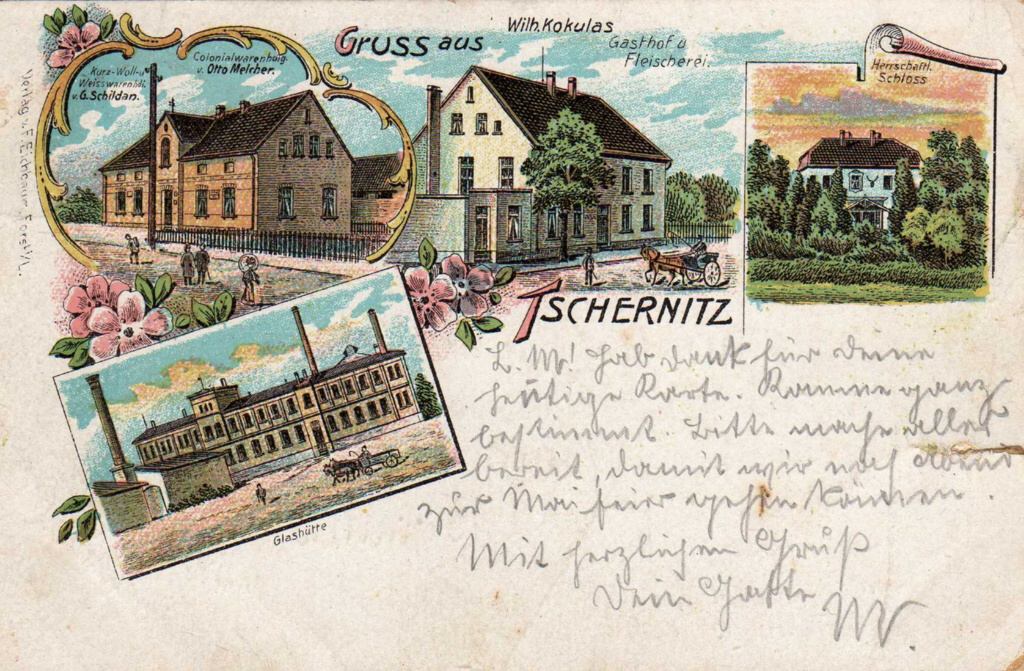 Wilh. Kokulas
Gruss aus
Gasthof u
Fleischerei.
Colonialwarenhdlg.
v. Otto Melcher.
Kurz-Woll-u
Weisswarenhdl.
v. G. Schildan.
Herrschaftl.
Schloss
Tschernitz
Glashütte
Verlag v. F. Eichbaum, Forst i/L.
L. M! Hab dank für deine
heutige Karte. Komme ganz
bestimmt. Bitte mache alles
bereit, damit wir noch abend
zur Maifeier gehen können.
Mit herzlichen Gruß
Dein Gatte
W